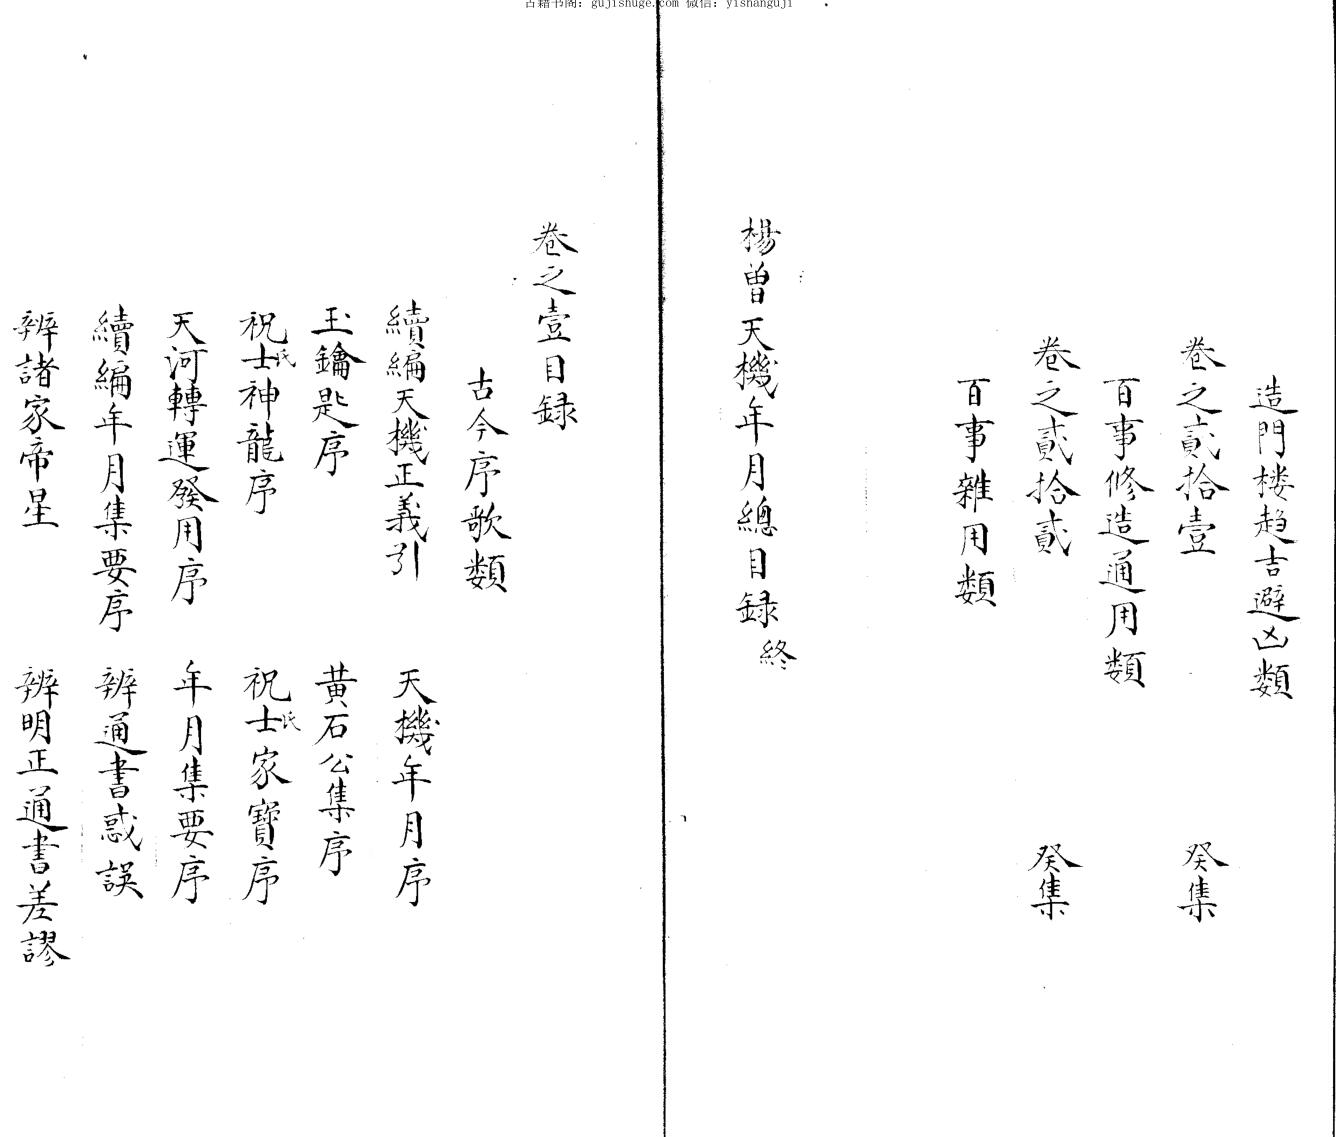 古籍书阁：gujishuge.com 微信：yishanguji
造門楼趋吉避凶類
卷之貳拾壹 癸集
百事修造通用類
卷之貳拾貳 癸集
百事雜用類
楊曾天機年月總目録終
卷之壹目録
古今序歌類
續編天機正義引 天機年月序
玉鑰匙序 黄石公集序
祝士氏神龍序 祝士氏家寶序
天河轉運發用序 年月集要序
續編年月集要序 辨通書惑誤
辨諸家帝星 辨明正通書差謬